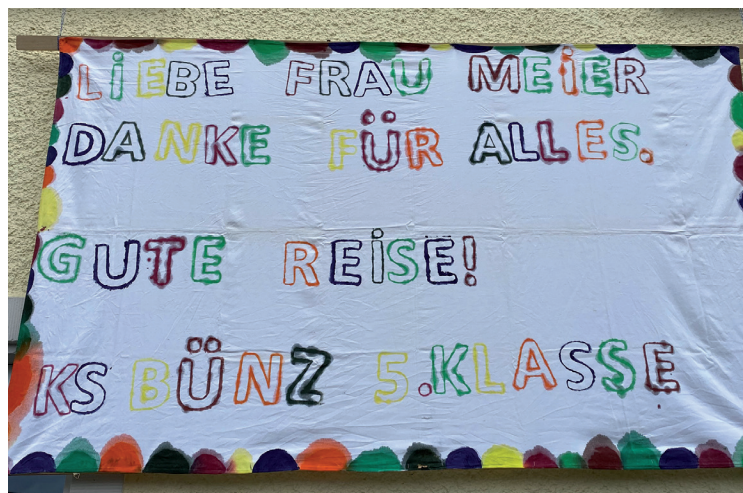 LiEBE FRAU MEiER
DANKE FÜR ALLES.
GUTE REiSE!
KS BÜNZ 5.KLASSE